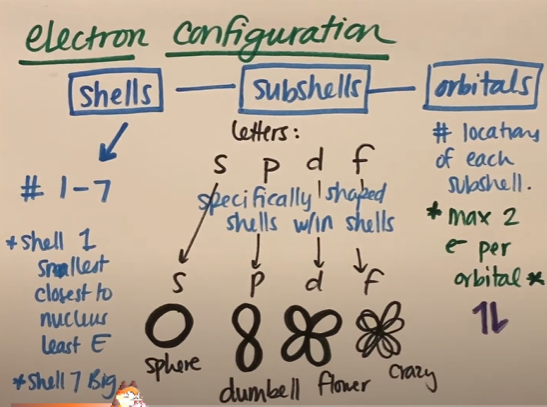 electron configuration
shells
subshells
orbitals
# 1-7
*shell 1
smallest
closest to
nucleus
least E
*shell 7 Big
letters:
s p d f
specifically shaped
shells w/in shells
s p d f
sphere
dumbell
flower
crazy
# locations
of each
subshell.
*max 2
e- per
orbital*
⥮